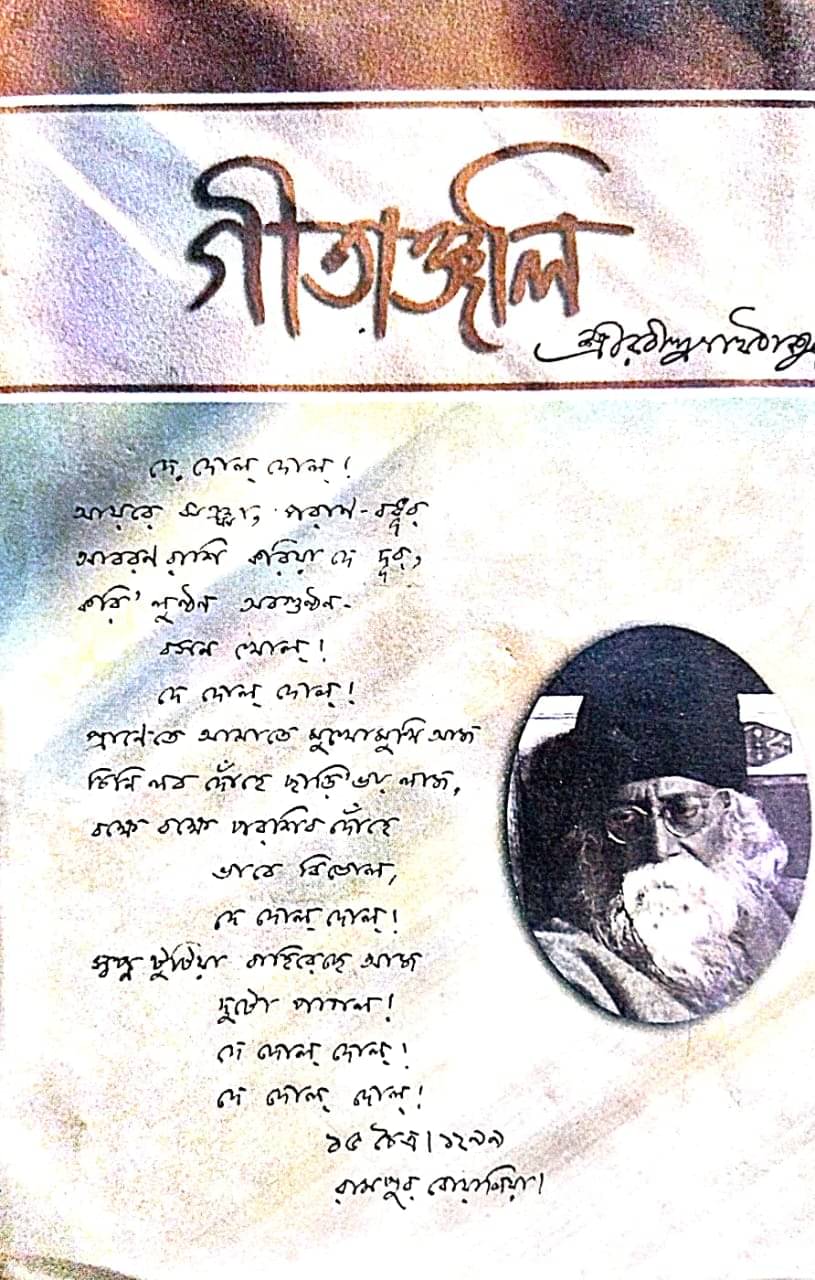 গীতাঞ্জলি
শ্রীরবীন্দ্রনাথঠাকুর
দে দোল্ দোল্!
আয়রে ঝঞ্ঝা, পরাণ-বধূর
আবরণ রাশি করিয়া দে দূর,
করি' লুণ্ঠন অবগুণ্ঠন-
বসন খোল্!
দে দোল্ দোল্!
প্রাণেতে আমাতে মুখোমুখি আজ
চিনি লব দোঁহে ছাড়ি' ভয় লাজ,
বক্ষে বক্ষে পরশিব দোঁহে
ভাবে বিভোল,
দে দোল্ দোল্!
স্বপ্ন টুটিয়া বাহিরেছে আজ
দুটো পাগল!
দে দোল্ দোল্!
দে দোল্ দোল্!
১৫ চৈত্র। ১২৯৯
রামপুর বোয়ালিয়া।